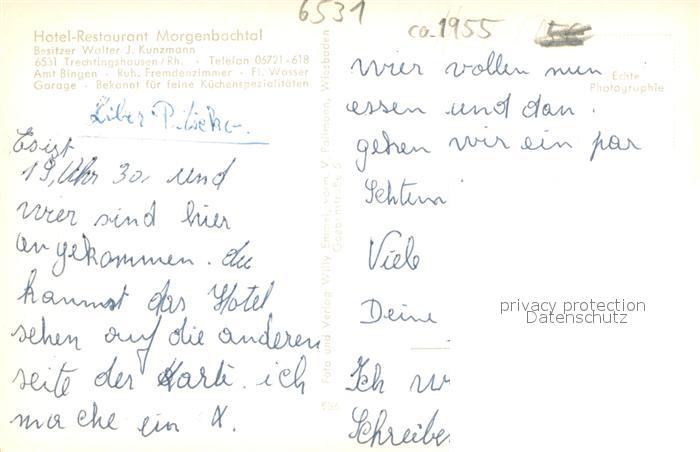 6531
ca. 1955
Hotel-Restaurant Morgenbachtal
Besitzer Walter J. Kunzmann
6531 Trechtingshausen/Rh. · Telefon 06721-618
Amt Bingen · Ruh. Fremdenzimmer · Fl. Wasser
Garage · Bekannt für feine Küchenspezialitäten
Liber
Es ist
19, Uhr 30, und
wier sind hier
angekommen. du
kannst das Hotel
sehen auf die anderen
seite der Karte. ich
mache ein X.
Foto und Verlag Willy Emmel, vorm. V. Pallmann, Wiesbaden
Goebenstraße 5
Echte
Photographie
wier wollen nun
essen und dan.
gehen wir ein par
Viele
Deine
Ich w
Schreibe
privacy protection
Datenschutz